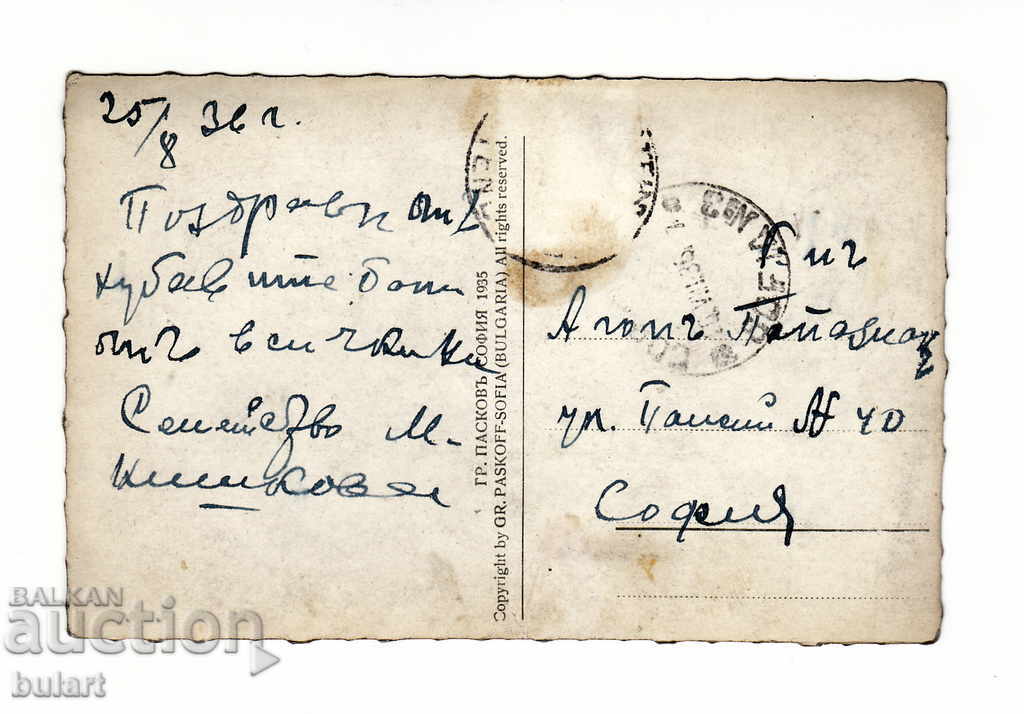 25/8 36 г.
Поздрави отъ
хубавите бани
отъ всички ни
Семейство М.
ГР. ПАСКОВЪ СОФИЯ 1935
Copyright by GR. PASKOFF-SOFIA (BULGARIA) All rights reserved.
Агопъ
ул. Паисий № 40
София
BALKAN
auction
bulart